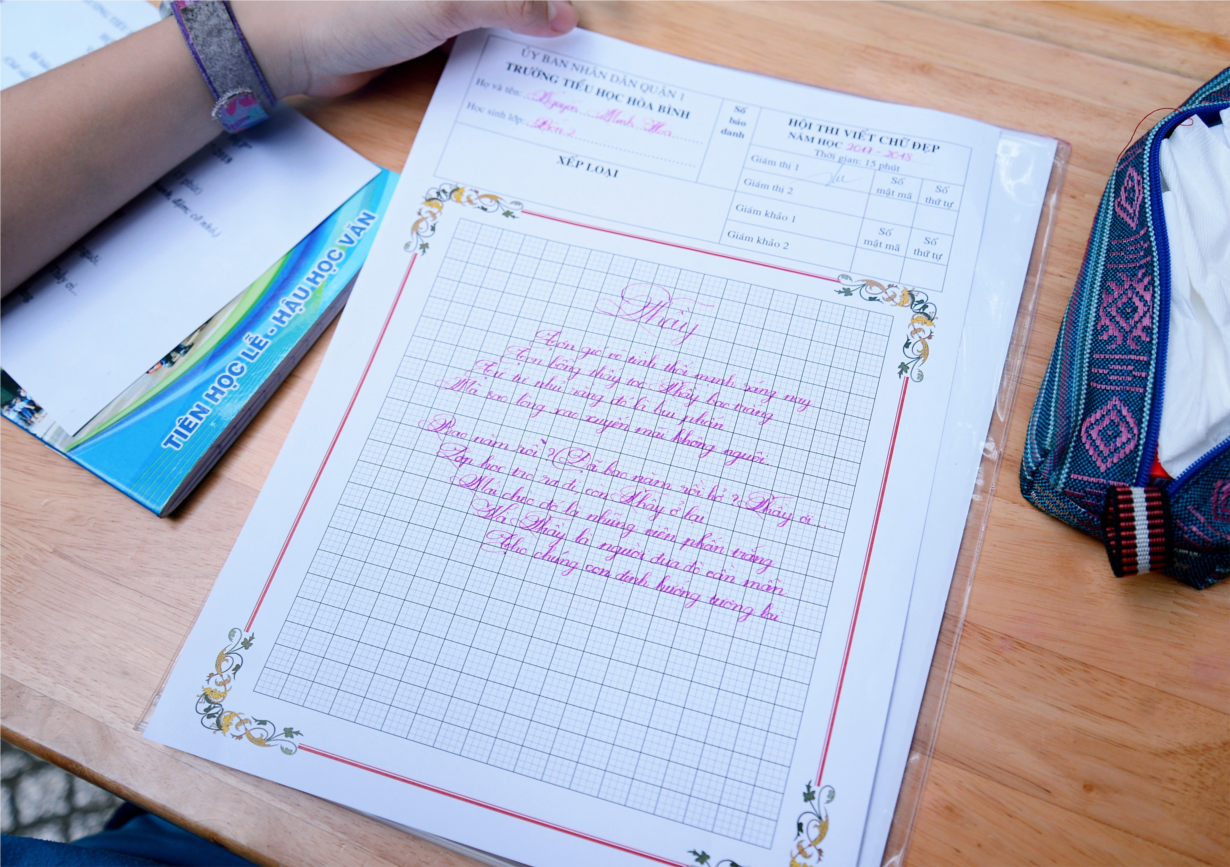 ỦY BAN NHÂN DÂN QUẬN 1
TRƯỜNG TIỂU HỌC HÒA BÌNH
Họ và tên: Nguyễn Minh
Học sinh lớp:
Số
báo
danh
HỘI THI VIẾT CHỮ ĐẸP
NĂM HỌC 2017 - 2018
Thời gian: 15 phút
Giám thị 1
Giám thị 2
Số
mật mã
Số
thứ tự
Giám khảo 1
Giám khảo 2
Số
mật mã
Số
thứ tự
XẾP LOẠI
Thầy
Cơn gió vô tình thổi mạnh sáng nay
Con bỗng thấy tóc Thầy bạc trắng
Cứ tự nhủ rằng đó là bụi phấn
Mà sao lòng xao xuyến mãi không nguôi
Bao năm rồi ? Đã bao năm rồi hở ? Thầy ơi...
Lớp học trò ra đi, còn Thầy ở lại
Mái chèo đó là những viên phấn trắng
Và Thầy là người đưa đò cần mẫn
Cho chúng con định hướng tương lai
TIÊN HỌC LỄ - HẬU HỌC VĂN